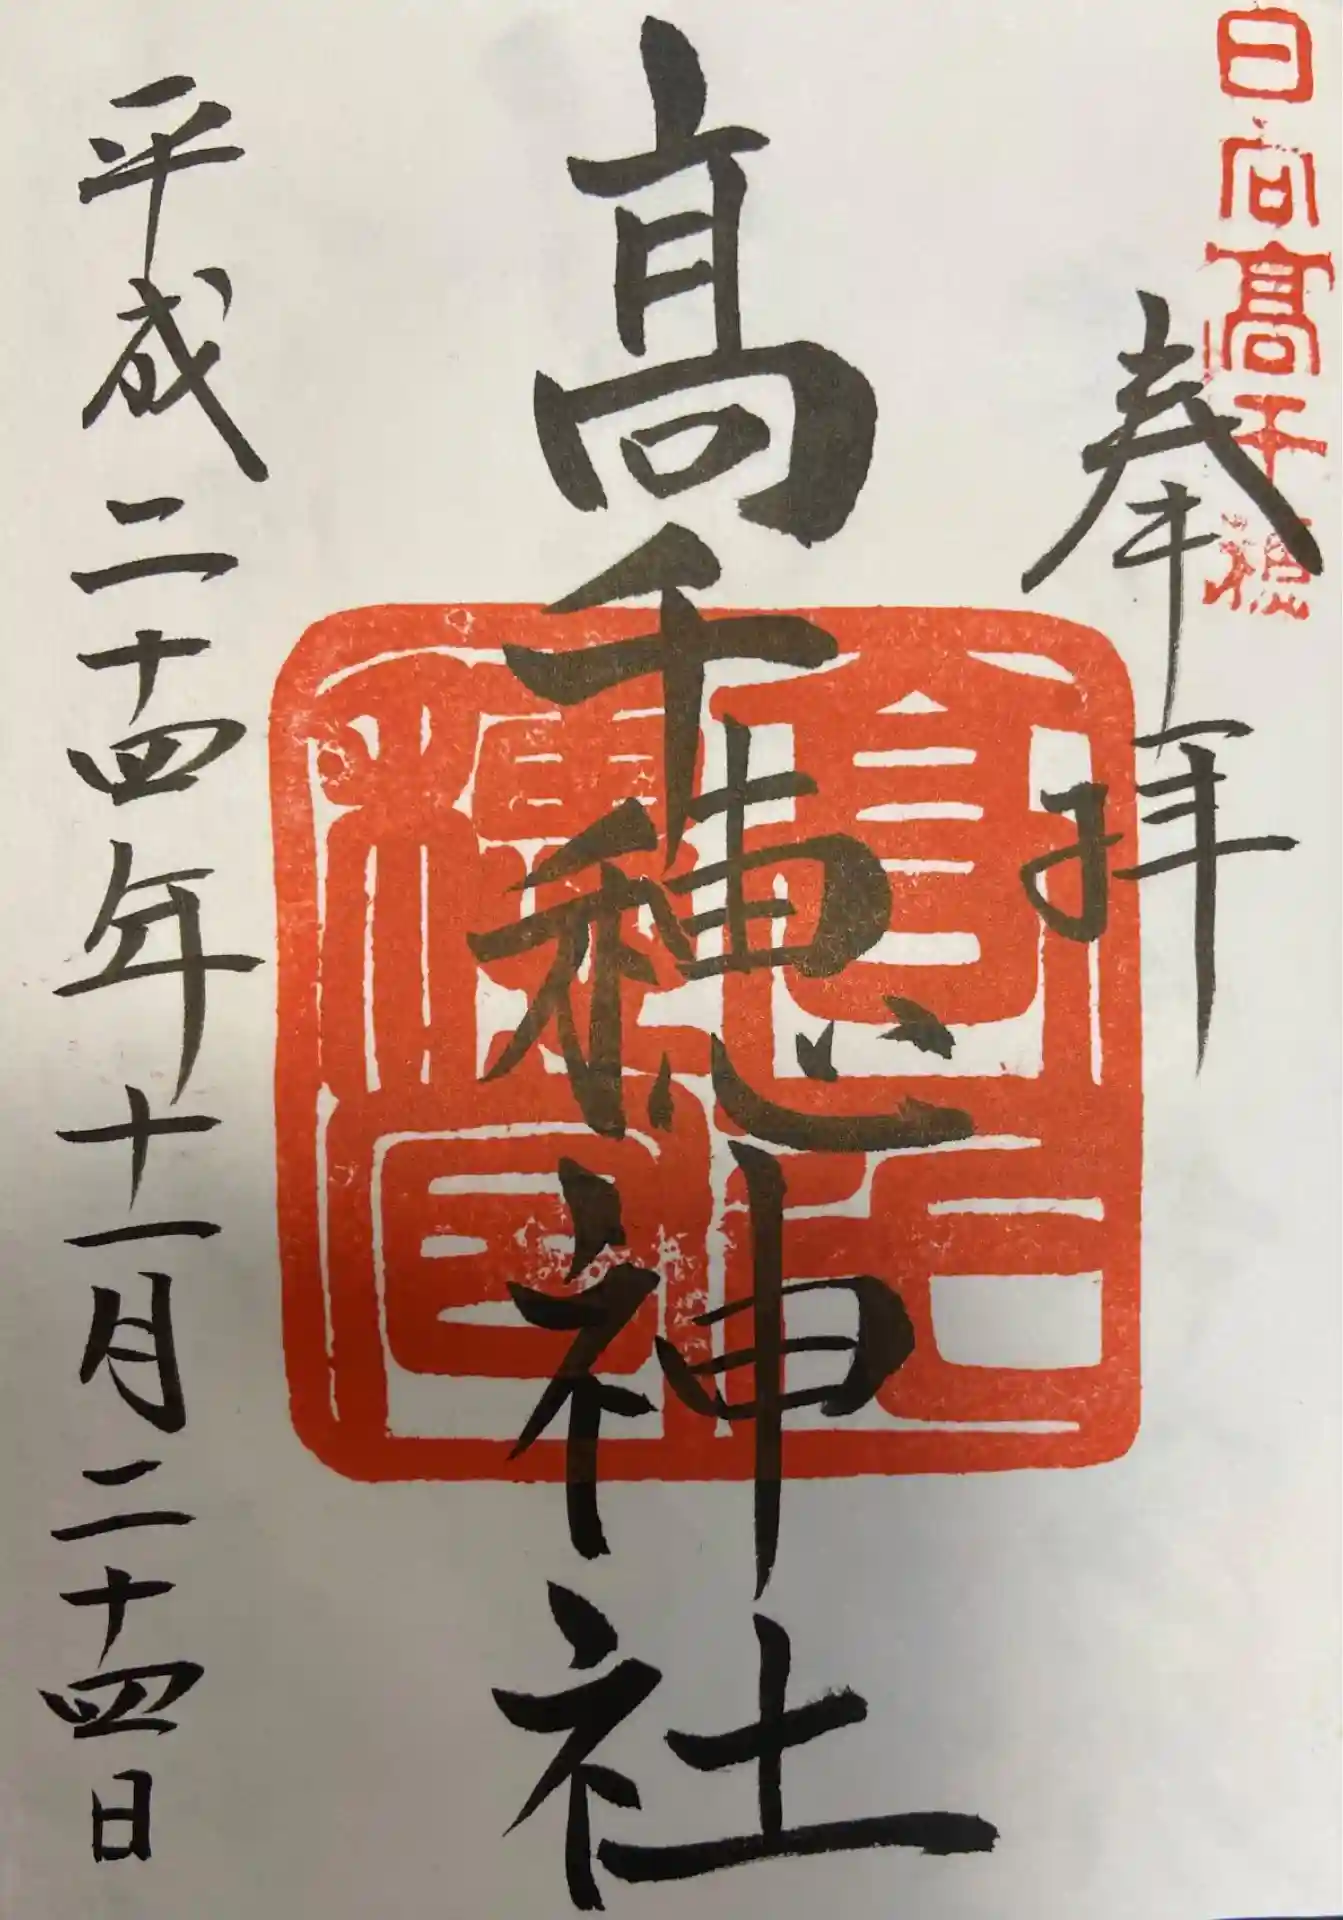 日向髙千穂
奉拝
髙千穂神社
平成二十四年十一月二十四日